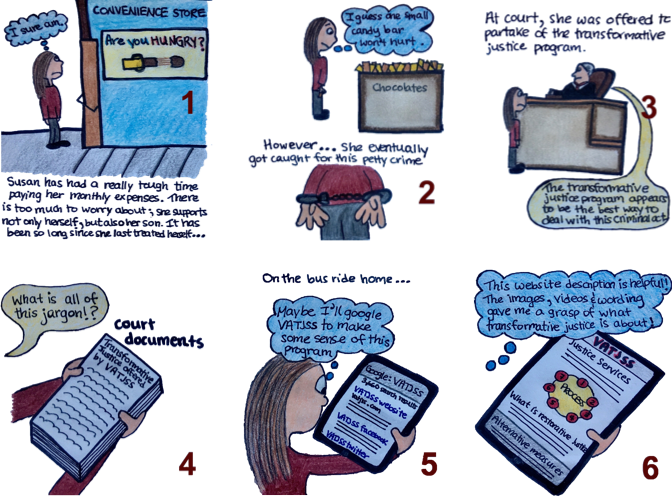 I sure am.
CONVENIENCE STORE
Are you HUNGRY?
1
Susan has had a really tough time
paying her monthly expenses. There
is too much to worry about; she supports
not only herself, but also her son. It has
been so long since she last treated herself...
I guess one small
candy bar
won't hurt.
Chocolates
However... she eventually
got caught for this petty crime
2
At court, she was offered to
partake of the transformative
justice program.
3
The transformative
justice program appears
to be the best way to
deal with this criminal act
What is all of
this jargon!?
court
documents
Transformative
Justice offered
by VATJSS
4
On the bus ride home...
Maybe I'll google
VATJSS to make
some sense of this
program
Google: VATJSS
search results
VATJSS website
VATJSS facebook
VATJSS twitter
5
This website description is helpful!
The images, videos & wording
gave me a grasp of what
transformative justice is about!
VATJSS
Justice services
PROCESS
What is restorative justice
Alternative measures
6